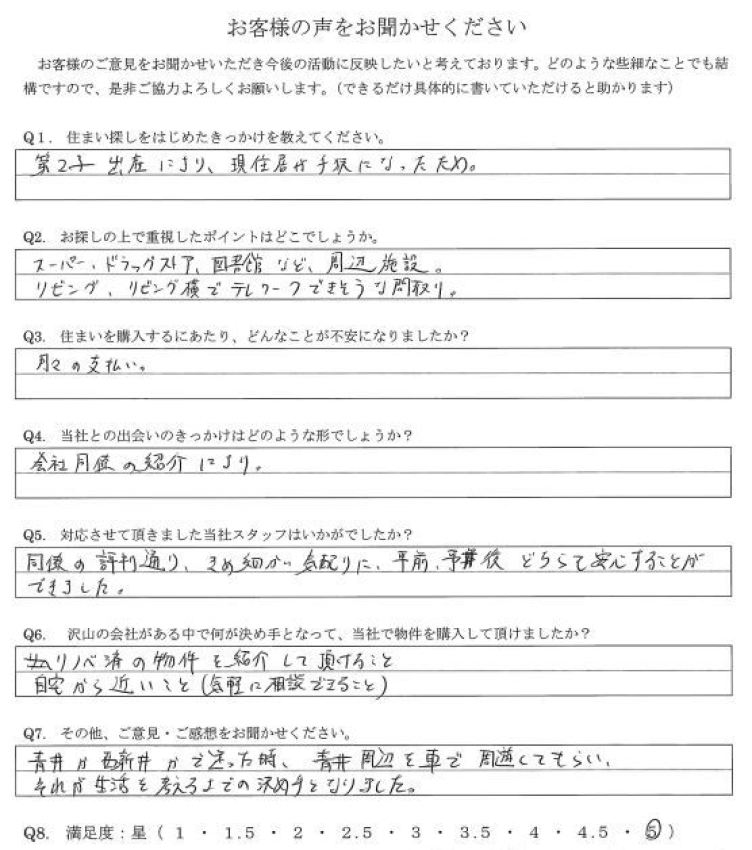 お客様の声をお聞かせください
お客様のご意見をお聞かせいただき今後の活動に反映したいと考えております。どのような些細なことでも結
構ですので、是非ご協力よろしくお願いします。(できるだけ具体的に書いていただけると助かります)
Q1. 住まい探しをはじめたきっかけを教えてください。
第2子 出産により、現住居が手狭になったため。
Q2. お探しの上で重視したポイントはどこでしょうか。
スーパー、ドラッグストア、図書館など、周辺施設。
リビング、リビング横でテレワークできそうな間取り。
Q3. 住まいを購入するにあたり、どんなことが不安になりましたか?
月々の支払い。
Q4. 当社との出会いのきっかけはどのような形でしょうか?
会社同僚の紹介により。
Q5. 対応させて頂きました当社スタッフはいかがでしたか?
同僚の評判通り、きめ細かい気配りに、事前、事後どちらも安心することが
できました。
Q6. 沢山の会社がある中で何が決め手となって、当社で物件を購入して頂けましたか?
リノベ済の物件を紹介して頂けること
自宅から近いこと(気軽に相談できること)
Q7. その他、ご意見・ご感想をお聞かせください。
青井か西新井かで迷った時、青井周辺を車で周遊してもらい、
それが生活を考える上での決め手となりました。
Q8. 満足度:星 ( 1 ・ 1.5 ・ 2 ・ 2.5 ・ 3 ・ 3.5 ・ 4 ・ 4.5 ・ 5 )